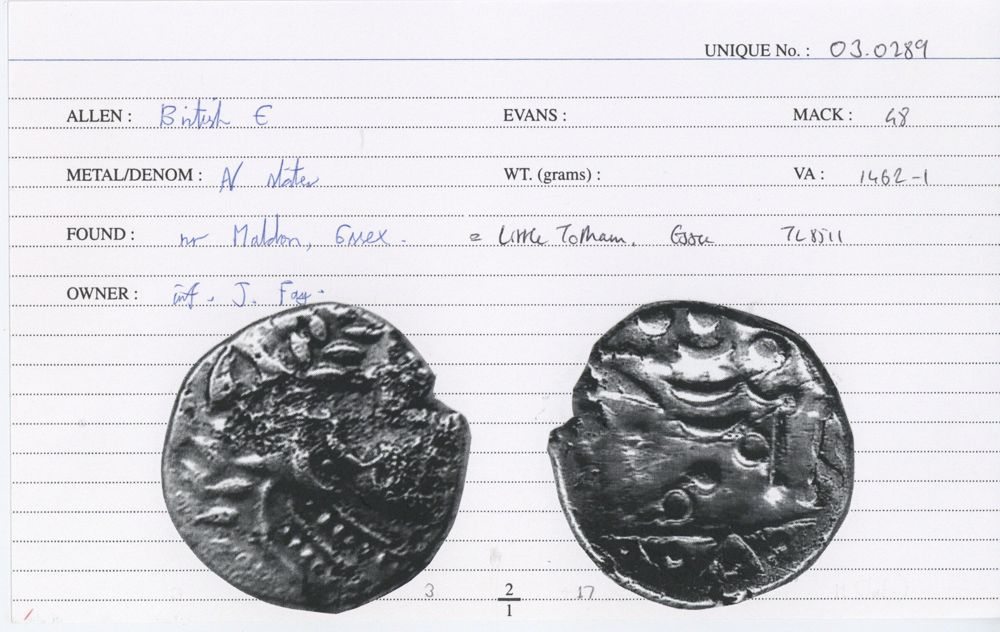 UNIQUE No. : 03.0289
ALLEN : British E EVANS : MACK : 48
METAL/DENOM : AV stater WT. (grams) : VA : 1462-1
FOUND : nr Maldon, Essex. = Little Totham, Essex TL8511
OWNER : inf. J. Fay.
3 2/1 17